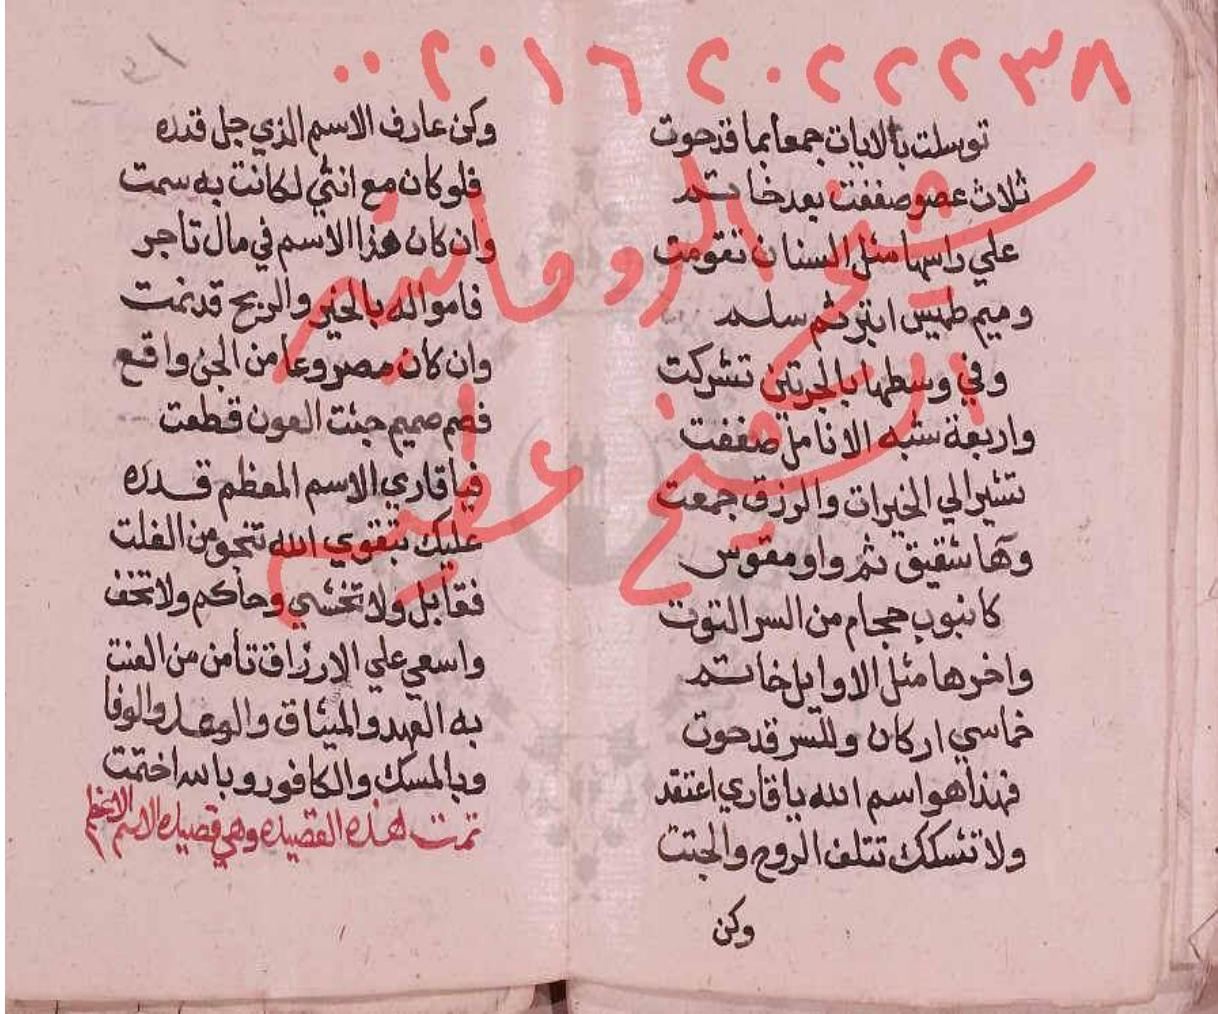 ٠٠٢٠١٦٢٠٢٢٢٢٣٨
شيخ الروحانيه
الشيخ عظيم
توسلت بالايات جمعا بما قد حوت
ثلاث عصو صففت بعد خاتم
علي راسها مثل السنان تقومت
وميم طميس ابتر ثم سلم
وفي وسطها بالجرتين تشركت
واربعة شبه الانامل صففت
تشير الي الخيرات والرزق جمعت
وها شقيق ثم واو مقوس
كانبوب حجام من السر التوت
واخرها مثل الاوايل خاتم
خماسي اركان وللسر قد حوت
فهذا هو اسم الله يا قاري اعتقد
ولا تشكك تتلف الروح والجتت
وكن
وكن عارف الاسم الذي جل قدره
فلو كان مع انثي لكانت به سمت
وان كان هذا الاسم في مال تاجر
فامواله بالخير والربح قد نمت
وان كان مصروعا من الجن واقع
فصم صميم جئت العون قطعت
فيا قاري الاسم المعظم قدره
عليك بتقوي الله تنجو من الفلت
فقابل ولا تخشي وحاكم ولا تخف
واسعي علي الارزاق تامن من العنت
به العهد والميثاق والوعد والوفا
وبالمسك والكافور وبالله اختمت
تمت هذه القصيده وهي قصيده الاسم الاعظم